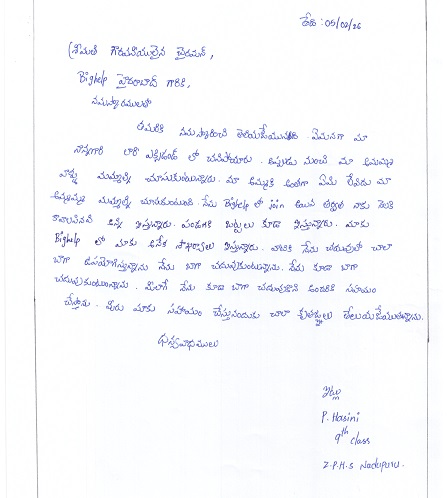 తేది : 05/02/26
శ్రీమతి గౌరవనీయులైన ఛైర్మన్,
Bighelp హైదరాబాద్ గారికి,
నమస్కారములతో
తమరికి నమస్కరించి తెలియజేయునది. ఏమనగా మా
నాన్నగారి లారీ ఎక్సిడెంట్ లో చనిపోయారు. అప్పుడు నుంచి మా అమ్మమ్మ
వాళ్ళు మమ్మల్ని చూసుకుంటున్నారు. మా అమ్మకి అంతగా ఏమి లేవడు మా
అమ్మమ్మ మమ్మల్ని చూసుకుంటుంది. నేను Bighelp లో join అయిన తర్వాత నాకు
కావాలసినవి అన్ని ఇస్తున్నారు. పండుగకి బట్టలు కూడా ఇస్తున్నారు. మాకు
Bighelp లో మాకు అనేక సౌకర్యాలు ఇస్తున్నారు. వాటికి నేను చదువులో చాలా
బాగా ఉపయోగిస్తున్నాను నేను బాగా చదువుకుంటున్నాను. నేను కూడా బాగా
చదువుకుంటున్నాను. మీలాగే నేను కూడా బాగా చదువుకొని అందరికి సహాయం
చేస్తాను. మీరు మాకు సహాయం చేస్తునందుకు చాలా కృతజ్ఞతలు తెలుయజేయుతున్నాను.
ధన్యవాదములు
ఇట్లు
P. Hasini
9th class
Z.P.H.S Nadupuru.